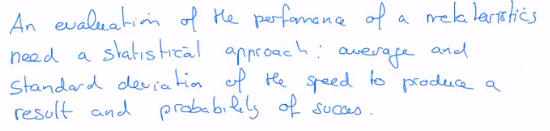 An evaluation of the perfomance of a metaheristics
need a statistical approach: average and
standard deviation of the speed to produce a
result and probability of succes.